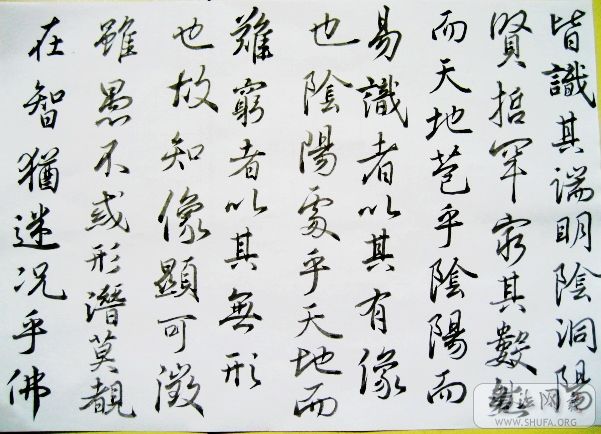 皆識其端明陰洞陽
賢哲罕窮其數然
而天地苞乎陰陽而
易識者以其有像
也陰陽處乎天地而
難窮者以其無形
也故知像顯可徵
雖愚不惑形潛莫覩
在智猶迷况乎佛
WWW.SHUFA.ORG